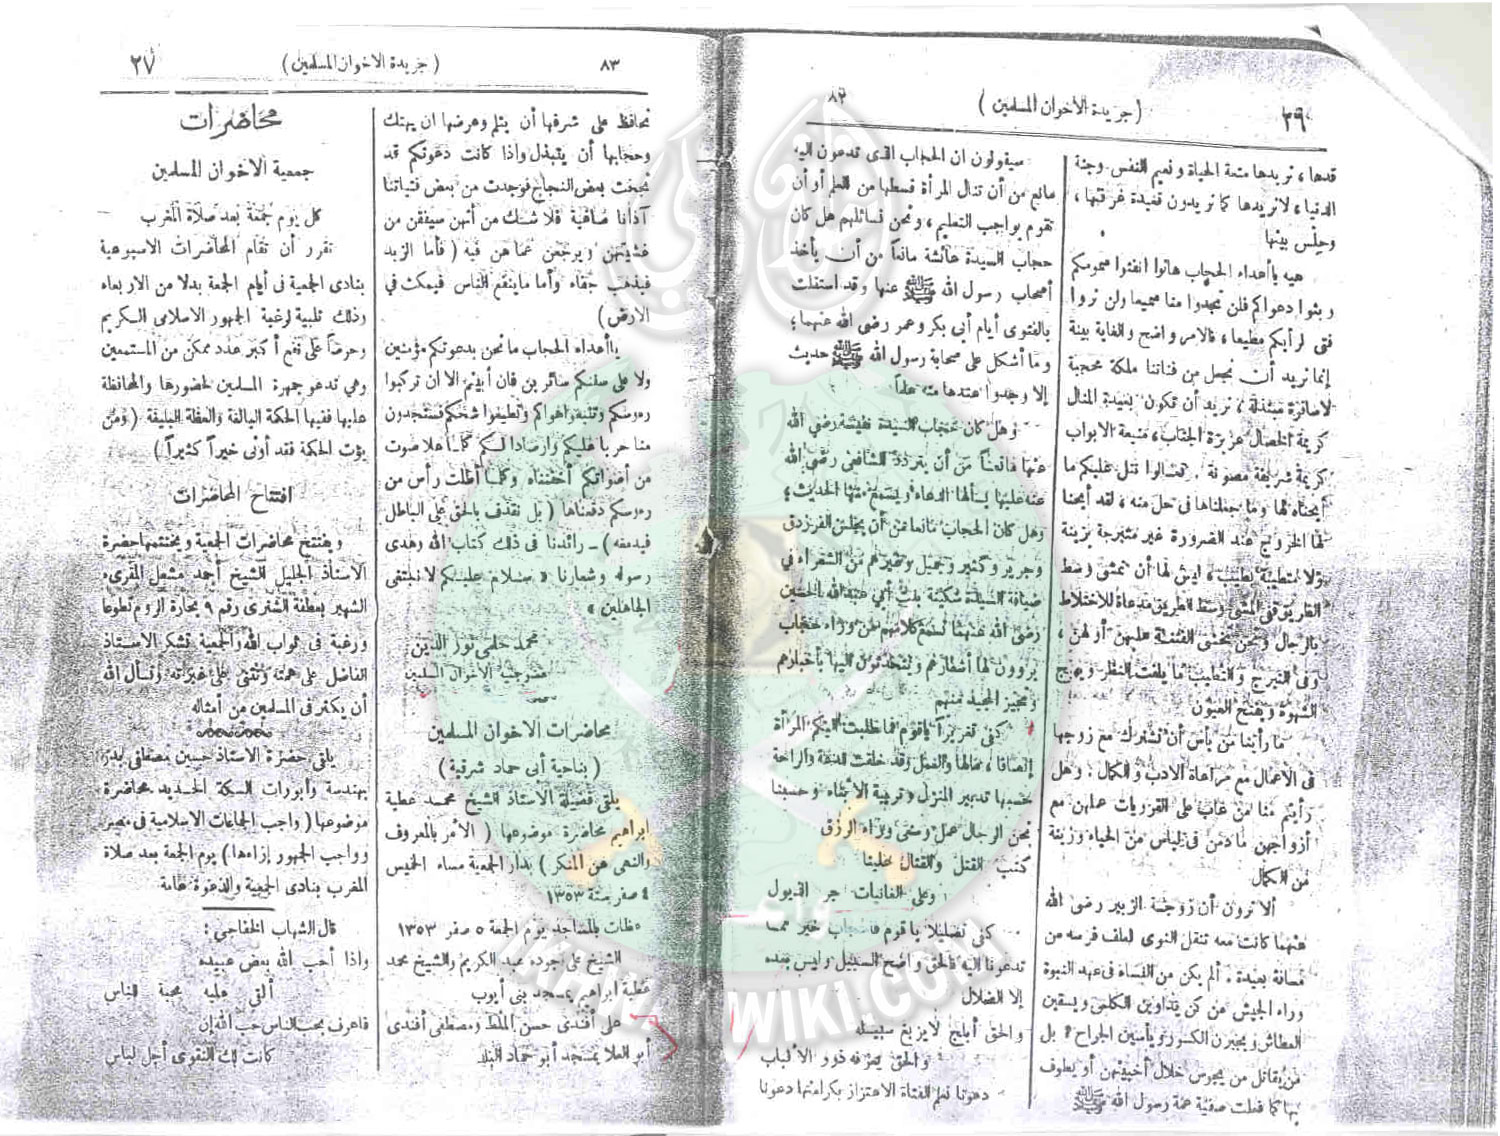 ٨٢
( جريدة الاخوان المسلمين )
قدها ، نريدها متعة الحياة ونعيم النفس وجنة
الدنيا ، لا نريدها كما تريدون قعيدة غرفتها ،
وحلس بيتها
هيه يا أعداء الحجاب هاتوا انفثوا سمومكم
وبثوا دعواكم فلن تجدوا منا سميعا ولن تروا
فتى لرأيكم مطيعا ، فالامر واضح والغاية بينة
إنما نريد أن نجعل من فتاتنا ملكة محجبة
لا سافرة مبتذلة ، نريد أن تكون بعيدة المنال
كريمة الخصال عزيزة الجناب ، منيعة الابواب
كريمة شريفة مصونة . تعالوا نتل عليكم ما
أبحناه لها وما جعلناها فى حل منه ، لقد أبحنا
لها الخروج عند الضرورة غير متبرجة بزينة
ولا متطيبة بطيب ، ليس لها أن تمشى وسط
الطريق ففى المشى وسط الطريق مدعاة للاختلاط
بالرجال ونحن نخشى الفتنة عليهن أو لهن ،
وفى التبرج والتعليب ما يلفت النظر ويهيج
الشهوة ويفتح العيون
ما رأينا من بأس أن تشترك مع زوجها
فى الاعمال مع مراعاة الادب والكمال . وهل
رأيتم منا من عاب على القرويات عملهن مع
أزواجهن ما دمن فى لباس من الحياء وزينة
من الكمال
ألا ترون أن زوجة الزبير رضى الله
عنهما كانت معه تنقل النوى لعلف فرسه من
مسافة بعيدة . ألم يكن من النساء فى عهد النبوة
وراء الجيش من كن يداوين الكلمى ويسقين
العطاش ويجبرن الكسور ويأسين الجراح ؟ بل
من يقاتل من يجوس خلال أخبيتهن أو يطوف
بها كما فعلت صفية عمة رسول الله ﷺ
سيقولون ان الحجاب الذى تدعون اليه
مانع من أن تنال المرأة قسطها من العلم أو أن
تقوم بواجب التعليم ، ونحن نسائلهم هل كان
حجاب السيدة عائشة مانعاً من أن يأخذ
أصحاب رسول الله ﷺ عنها وقد استقلت
بالفتوى أيام أبى بكر وعمر رضى الله عنهما ؛
وما أشكل على صحابة رسول الله ﷺ حديث
إلا وجدوا عندها منه علماً
وهل كان حجاب السيدة نفيسة رضى الله
عنها مانعاً من أن يتردد الشافعى رضى الله
عنه عليها يسألها الدعاء ويسمع منها الحديث ؛
وهل كان الحجاب مانعا من أن يجلس الفرزدق
وجرير وكثير وجميل وغيرهم من الشعراء فى
ضيافة السيدة سكينة بنت أبى عبد الله الحسين
رضى الله عنهما تسمع كلامهم من وراء حجاب
يروون لها أشعارهم ويتحدثون اليها بأخبارهم
وتجيز المجيد منهم
كفى تغريراً يا قوم فما طلبت اليكم المرأة
إنصافا ، مالها والعمل وقد خلقت للدعة والراحة
حسبها تدبير المنزل وتربية الابناء وحسبنا
نحن الرجال عمل وسعى وراء الرزق
كتب القتل والقتال علينا
وعلى الغانيات جر الذيول
كفى تضليلا يا قوم فالحجاب خير مما
تدعوننا اليه فالحق واضح السبيل وليس بعده
إلا الضلال
والحق أبلج لا يزيغ سبيله
والحق يعرفه ذوو الألباب
دعونا نعلم الفتاة الاعتزاز بكرامتها دعونا
٨٣
( جريدة الاخوان المسلمين )
٢٧
نحافظ على شرفها أن يثلم وعرضها ان يهتك
وحجابها أن يتبذل واذا كانت دعوتكم قد
نجحت بعض النجاح فوجدت من بعض فتياتنا
آذانا صاغية فلا شك من أنهن سيفقن من
غشيتهن ويرجعن عما هن فيه ( فأما الزبد
فيذهب جفاء وأما ما ينفع الناس فيمكث في
الارض )
يا أعداء الحجاب ما نحن بدعوتكم مؤمنين
ولا على سننكم سائرين فان أبيتم الا ان تركبوا
رءوسكم وتتبعوا أهواكم وتطيعوا شحكم فستجدون
منا حربا عليكم وارصادا لكم كلما علا صوت
من أصواتكم أخفتناه وكلما أطلت رأس من
رءوسكم دفعناها ( بل نقذف بالحق على الباطل
فيدمغه ) ــ رائدنا فى ذلك كتاب الله وهدى
رسوله وشعارنا « سلام عليكم لا نبتغى
الجاهلين »
محمد حلمى نور الدين
محاضرات الاخوان المسلمين
( بناحية أبى حماد شرقية )
يلقى فضيلة الاستاذ الشيخ محمد عطية
ابراهيم محاضرة موضوعها ( الأمر بالمعروف
والنهى عن المنكر ) بدار الجمعية مساء الخميس
٤ صفر سنة ١٣٥٣
عظات بالمساجد يوم الجمعة ٥ صفر ١٣٥٣
الشيخ على جوده عبد الكريم والشيخ محمد
عطية ابراهيم بمسجد بنى أيوب
على أفندى حسن الملط ومصطفى أفندى
أبو العلا بمسجد أبو حماد البلد
محاضرات
جمعية الاخوان المسلمين
كل يوم جمعة بعد صلاة المغرب
تقرر أن تقام المحاضرات الاسبوعية
بنادى الجمعية فى أيام الجمعة بدلا من الاربعاء
وذلك تلبية لرغبة الجمهور الاسلامى الكريم
وحرصاً على نفع أكبر عدد ممكن من المستمعين
وهى تدعو جمهرة المسلمين لحضورها والمحافظة
عليها ففيها الحكمة البالغة والعظة البليغة ( ومن
يؤت الحكمة فقد أوتى خيراً كثيراً )
افتتاح المحاضرات
ويفتتح محاضرات الجمعية ويختتمها حضرة
الاستاذ الجليل الشيخ أحمد مشعل المقرىء
الشهير بعطفة الشفرى رقم ٩ بحارة الروم تطوعا
ورغبة فى ثواب الله والجمعية تشكر الاستاذ
الفاضل على همته وتثنى على غيرته وتسأل الله
أن يكثر فى المسلمين من أمثاله
يلقى حضرة الاستاذ حسين مصطفى بدر
بهندسة وأبورات السكة الحديد محاضرة
موضوعها ( واجب الجماعات الاسلامية فى مصر
وواجب الجمهور إزاءها ) يوم الجمعة بعد صلاة
المغرب بنادى الجمعية والدعوة عامة
قال الشهاب الخفاجى :
واذا أحب الله بعض عبيده
ألقى عليه محبة للناس
فاعرف بحب الناس حب الله إن
كانت لك التقوى أجل لباس
IKHWANWIKI.COM